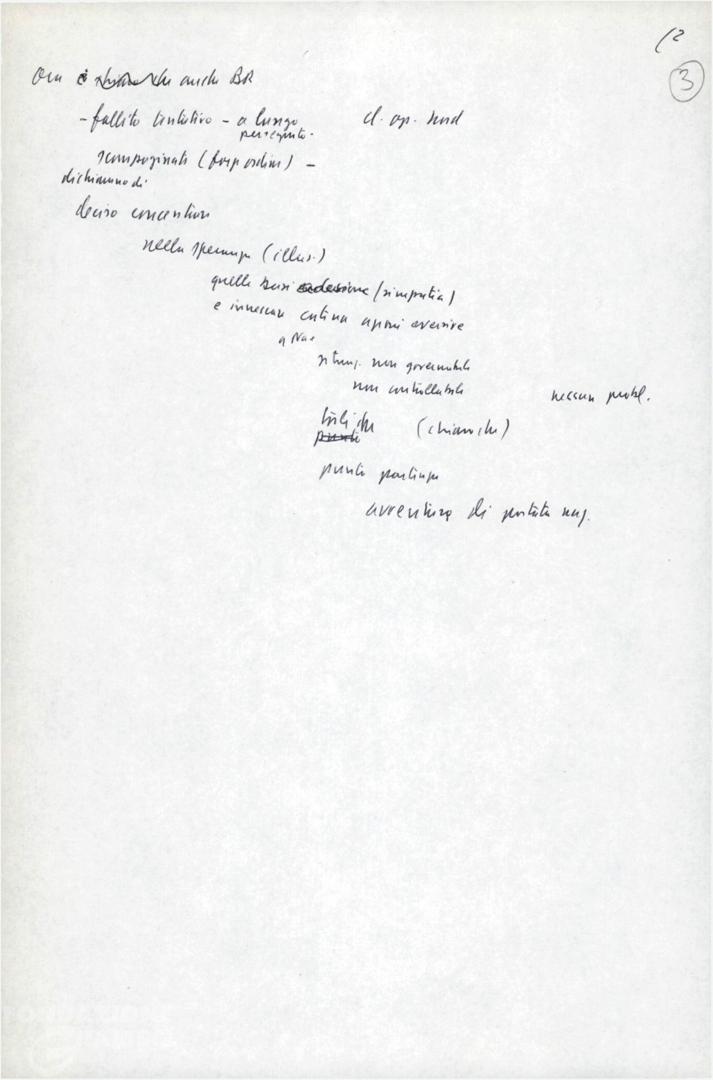 (2
3
Ora è che anche BR
- fallito tentativo - a lungo cl. op. nord
perseguito -
scompaginati (forze ordine) -
dichiarano di
deciso concentrare
nella speranza (illus.)
quelle basi adesione (simpatia)
e innescare catena azioni eversive
a Na-
situaz. non governabile
non controllabile nessun probl.
(chiaro che)
punti
punti partenza
avventura di portata naz.